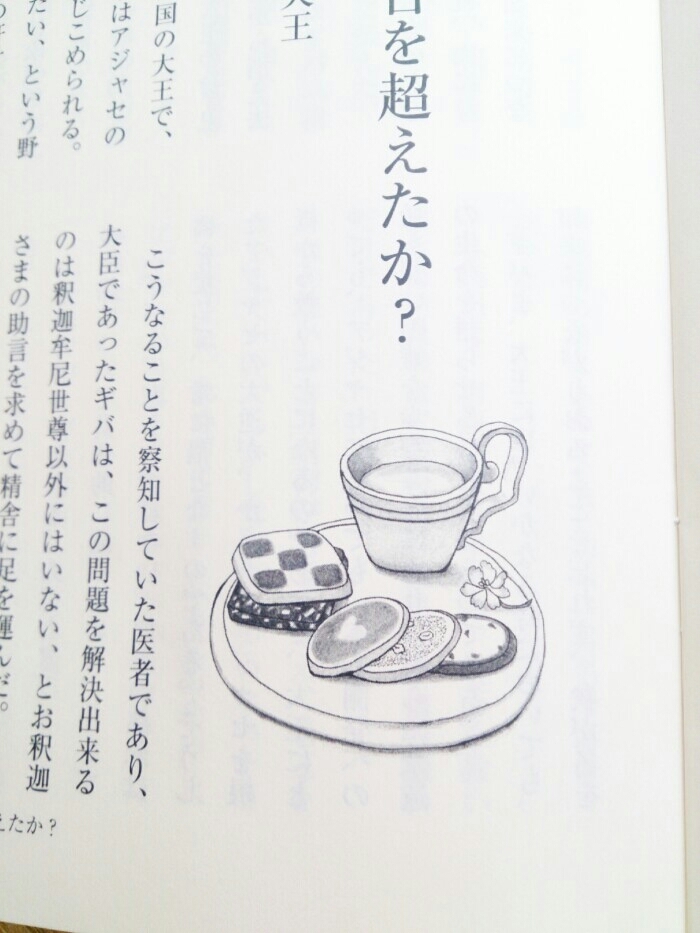 を超えたか?
大王
国の大王で、
はアジャセの
じこめられる。
たい、という野
こうなることを察知していた医者であり、
大臣であったギバは、この問題を解決出来る
のは釈迦牟尼世尊以外にはいない、とお釈迦
さまの助言を求めて精舎に足を運んだ。
えたか?